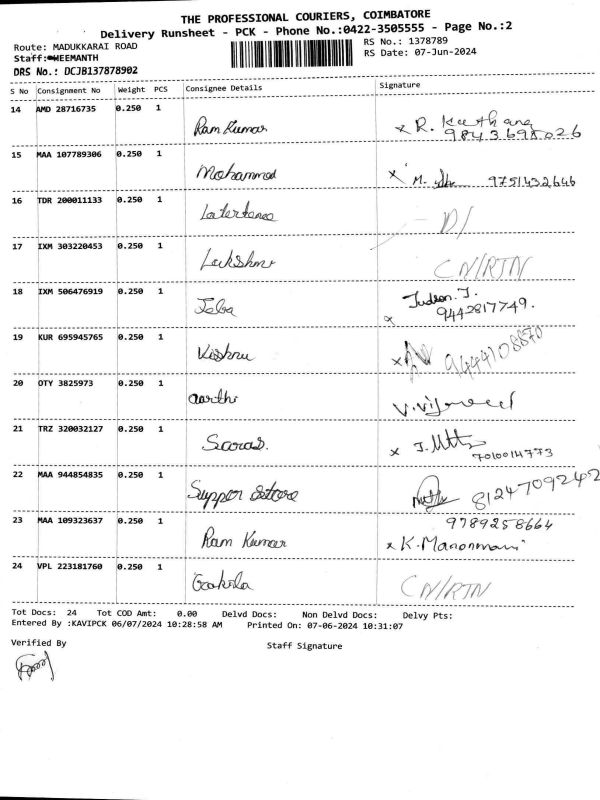 THE PROFESSIONAL COURIERS, COIMBATORE
Delivery Runsheet - PCK - Phone No.:0422-3505555 - Page No.:2
Route: MADUKKARAI ROAD
RS No.: 1378789
Staff: HEEMANTH
RS Date: 07-Jun-2024
DRS No.: DCJB137878902
S No Consignment No Weight PCS Consignee Details Signature
14 AMD 28716735 0.250 1 Ram Kumar x R. Keethana
9843698026
15 MAA 107789306 0.250 1 Mohammed x M. 9751432646
16 TDR 200011133 0.250 1 D/
17 IXM 303220453 0.250 1 Lakshmi CN/RTN
18 IXM 506476919 0.250 1 Jeba x Judson. J.
9442817749.
19 KUR 695945765 0.250 1 Vishnu x 9444108870
20 OTY 3825973 0.250 1 aarthi
21 TRZ 320032127 0.250 1 Saras. x J.
7010014773
22 MAA 944854835 0.250 1 Supper Store 8124709242
23 MAA 109323637 0.250 1 Ram Kumar 9789258664
x K. Manonmani
24 VPL 223181760 0.250 1 Gokila CN/RTN
Tot Docs: 24 Tot COD Amt: 0.00 Delvd Docs: Non Delvd Docs: Delvy Pts:
Entered By :KAVIPCK 06/07/2024 10:28:58 AM Printed On: 07-06-2024 10:31:07
Verified By
Staff Signature